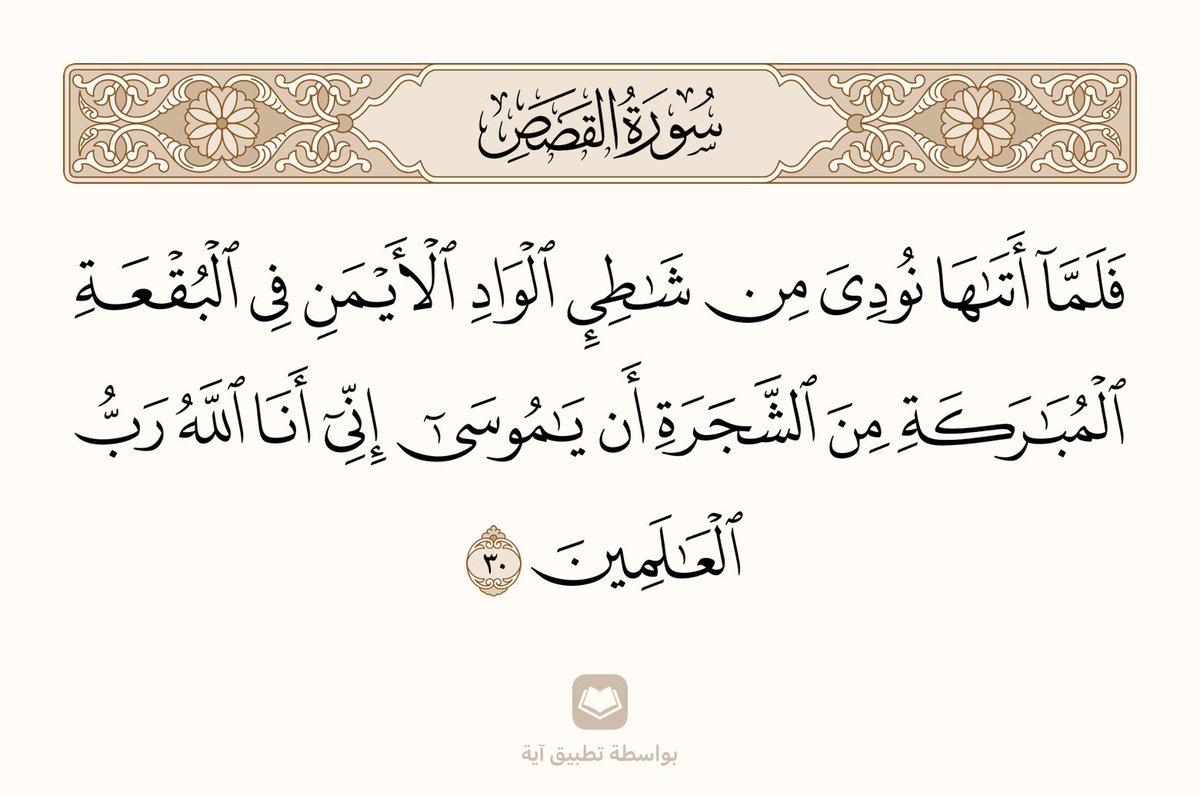 سُورَةُ القَصَصِ
فَلَمَّآ أَتَىٰهَا نُودِىَ مِن شَٰطِئِ ٱلْوَادِ ٱلْأَيْمَنِ فِى ٱلْبُقْعَةِ
ٱلْمُبَٰرَكَةِ مِنَ ٱلشَّجَرَةِ أَن يَٰمُوسَىٰٓ إِنِّىٓ أَنَا ٱللَّهُ رَبُّ
ٱلْعَٰلَمِينَ ٣٠
بواسطة تطبيق آية